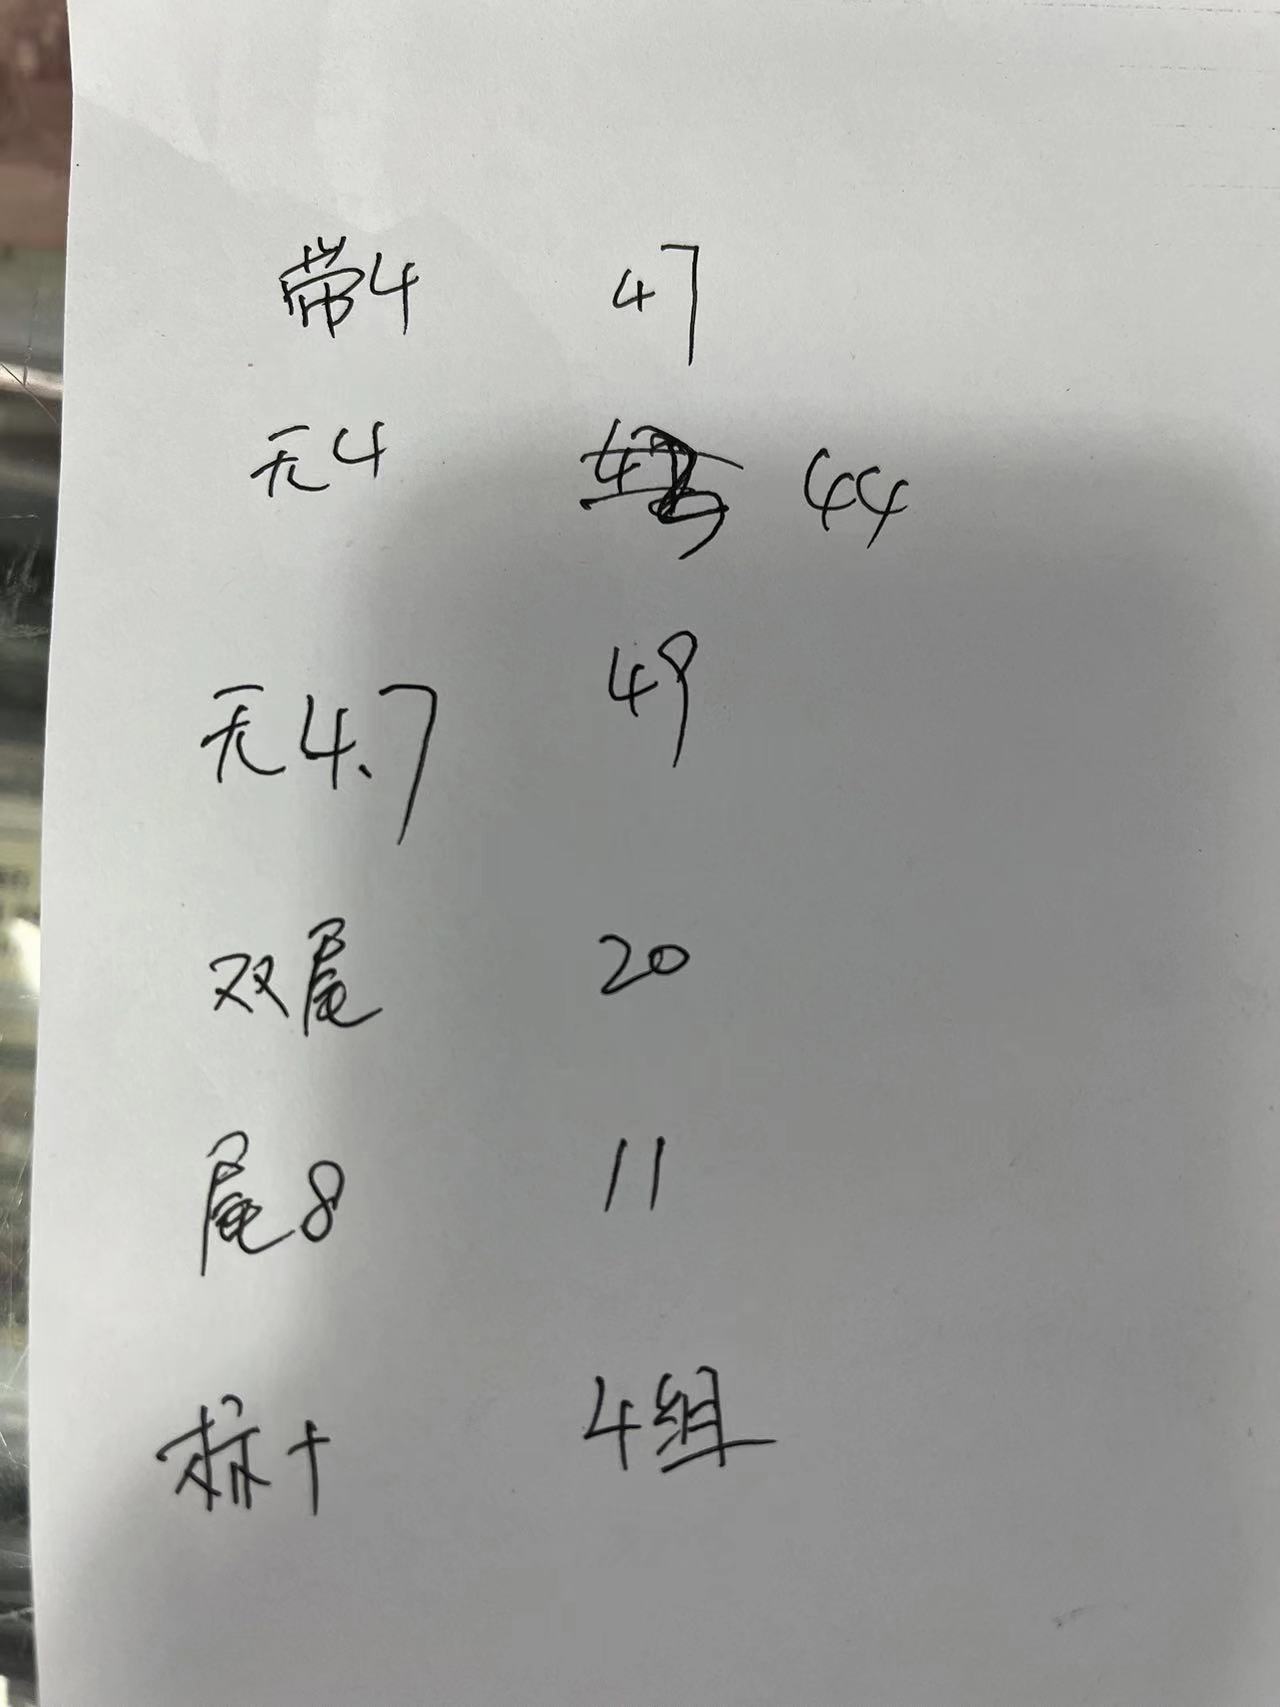 带4 47
无4 44
无4、7 49
双尾 20
尾8 11
标十 4组